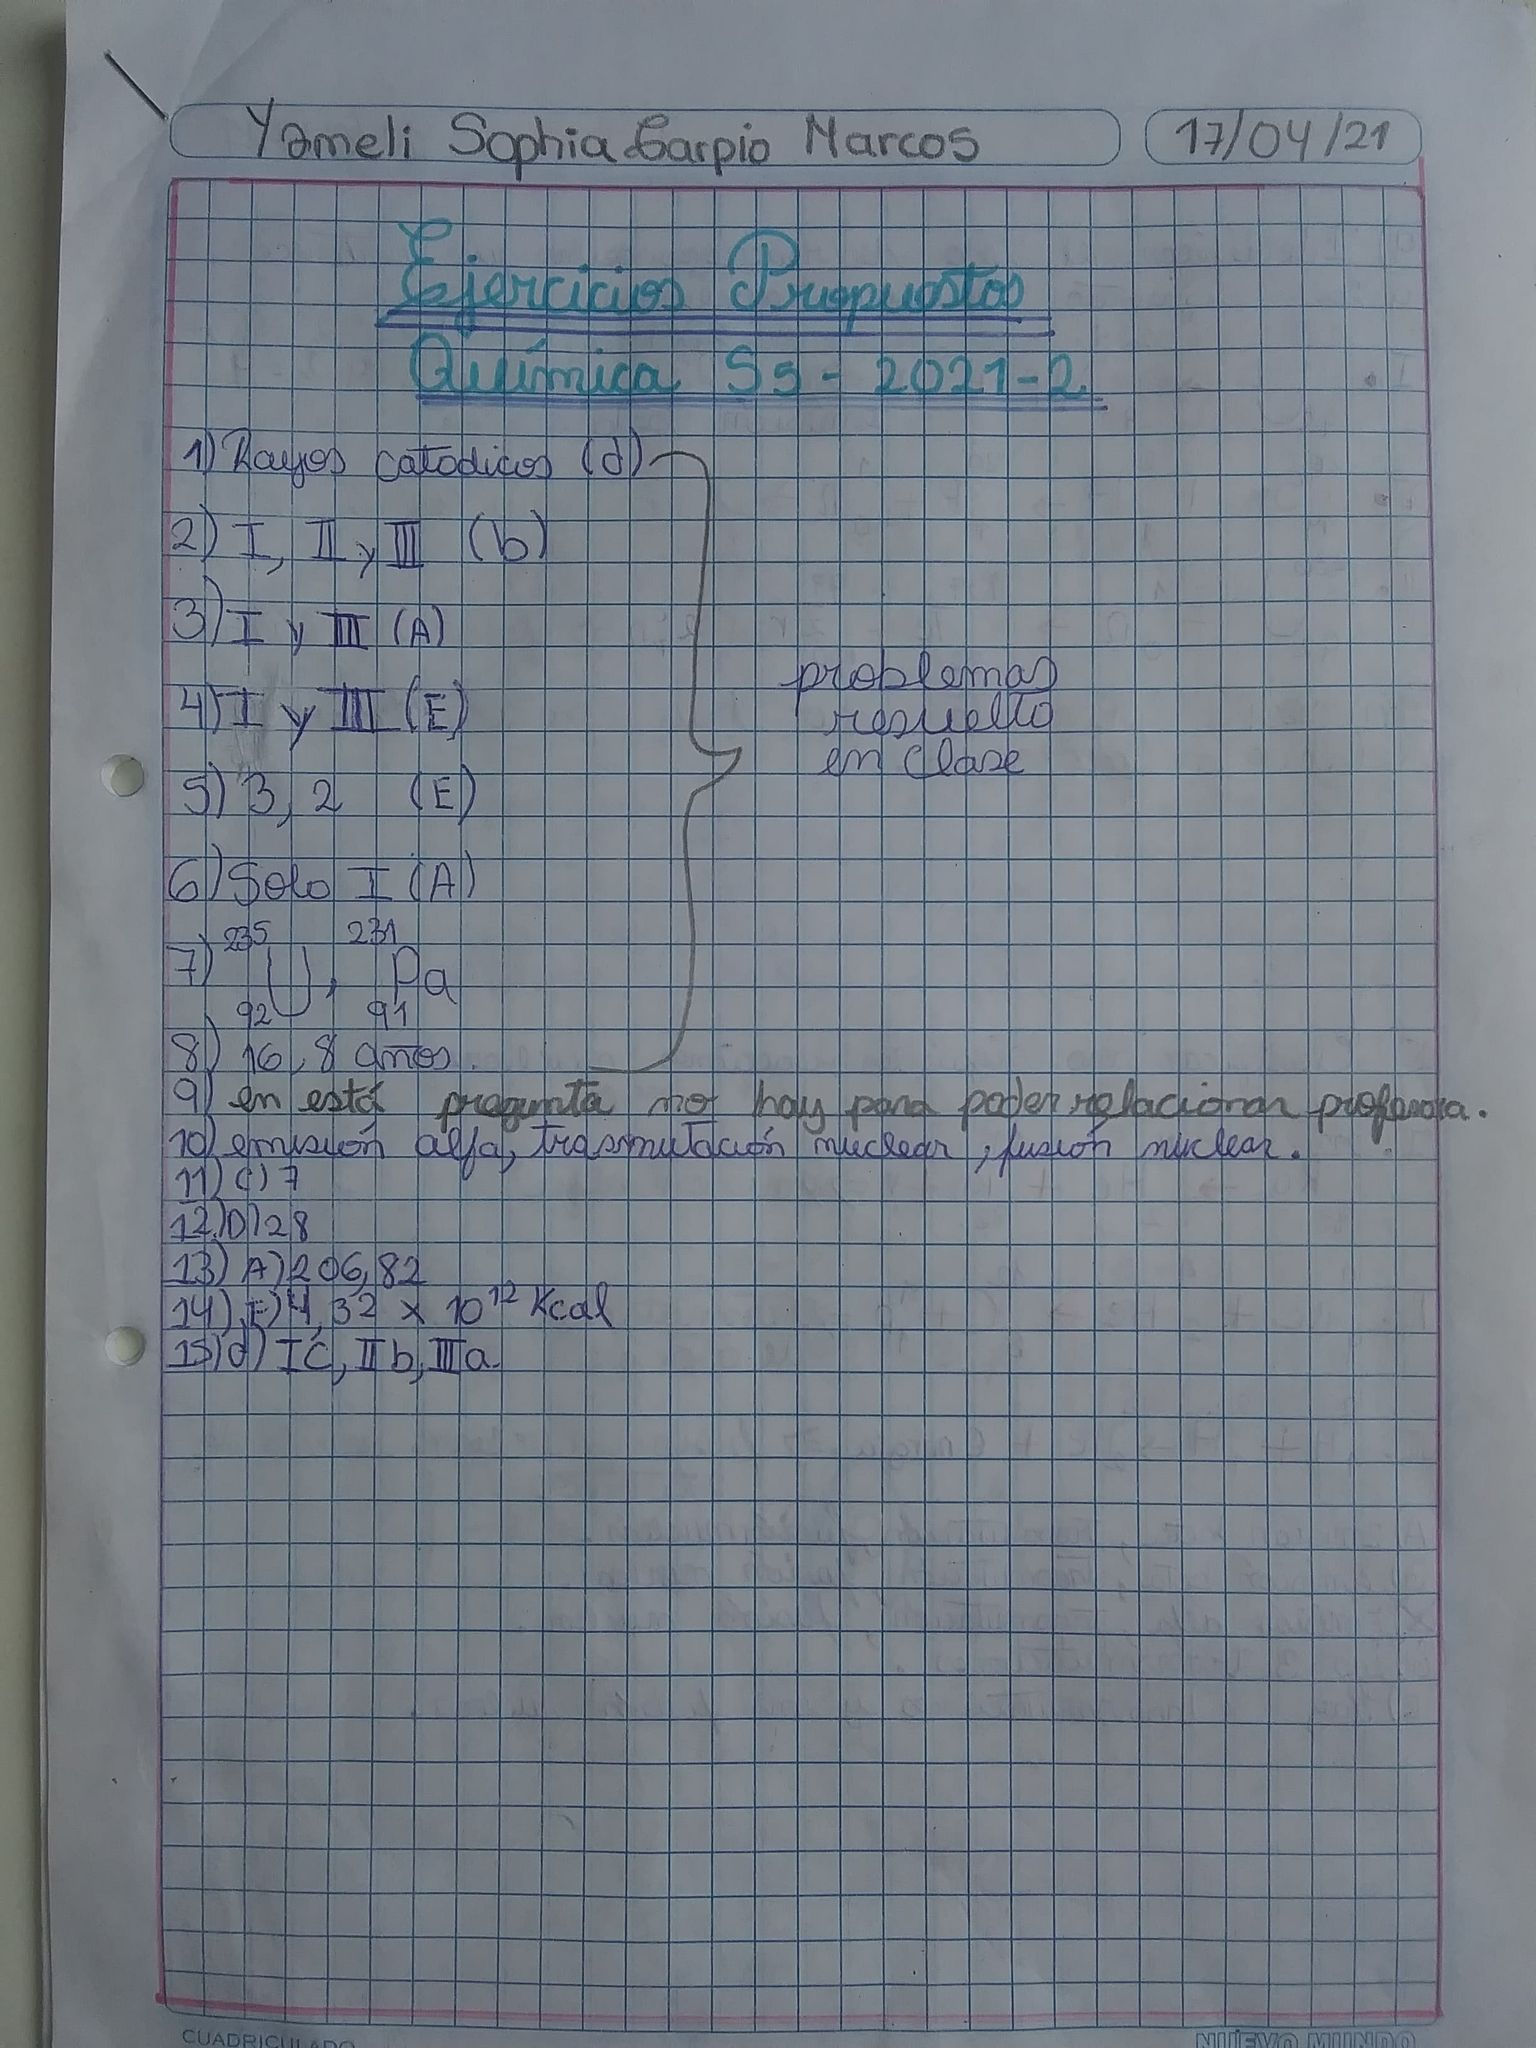 Yameli Sophia Carpio Marcos 17/04/21
Ejercicios Propuestos
Química S5 - 2021-2
1) Rayos catodicos (d)
2) I, II y III (b)
3) I y III (A)
4) I y III (E)
5) 3, 2 (E)
problemas
resuelto
en clase
6) Solo I (A)
7) 235 92 U, 231 91 Pa
8) 16,8 años.
9) en está pregunta no hay para poder relacionar profesora.
10) emisión alfa, trasmutación nuclear, fusión nuclear.
11) C) 7
12) D) 28
13) A) 206,82
14) E) 4,32 x 10¹² Kcal
15) d) Ic, IIb, IIIa.
CUADRICULADO
NUEVO MUNDO